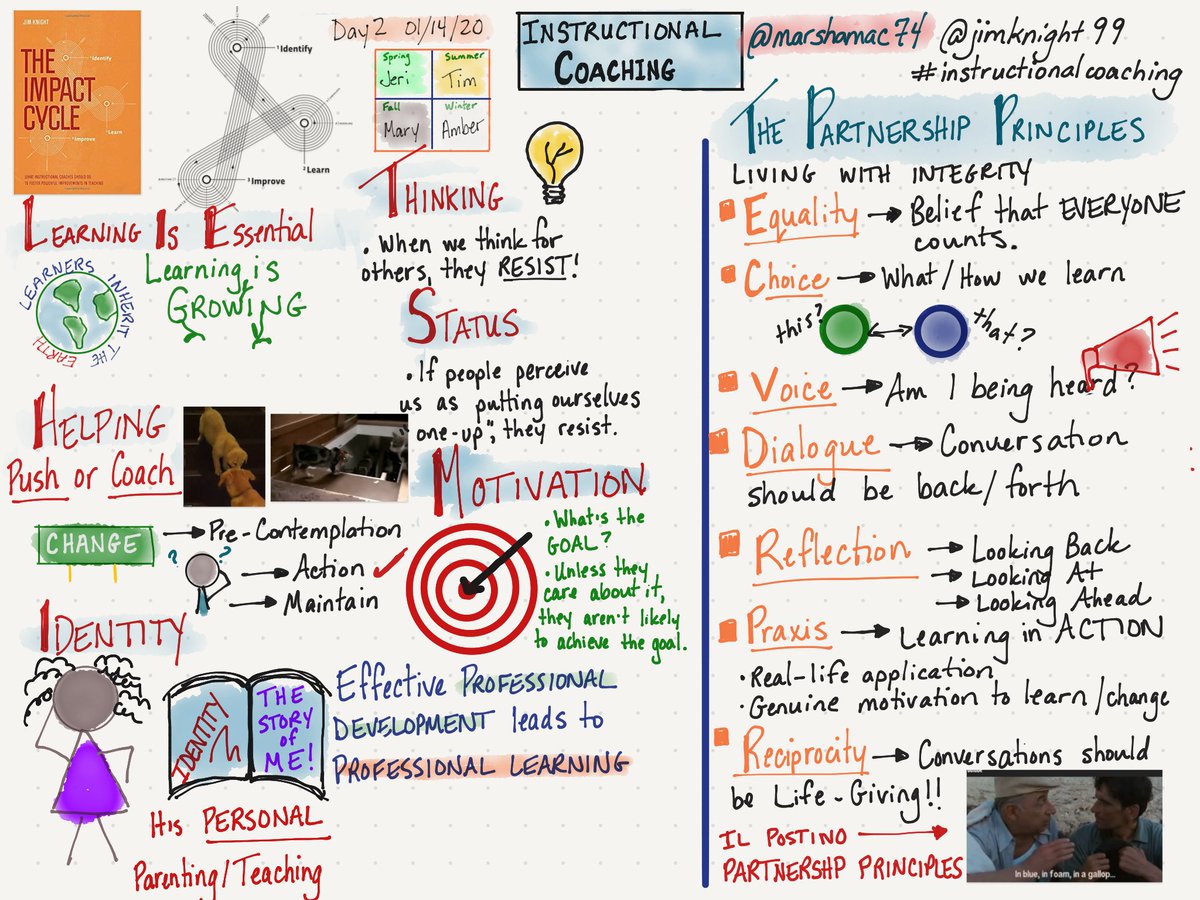 JIM KNIGHT
THE
IMPACT
CYCLE
Identify
Learn
Improve
WHAT INSTRUCTIONAL COACHES SHOULD DO
TO FOSTER POWERFUL IMPROVEMENTS IN TEACHING
1 Identify
2 Learn
3 Improve
Day 2 01/14/20
Spring
Jeri
Summer
Tim
Fall
Mary
Winter
Amber
INSTRUCTIONAL
COACHING
@marshamac74 @jimknight99
#instructionalcoaching
LEARNING IS ESSENTIAL
Learning is
GROWING
LEARNERS INHERIT THE
EARTH
HELPING
Push or Coach
CHANGE
? ?
Pre-Contemplation
Action
Maintain
IDENTITY
IDENTITY
THE
STORY
of
ME!
His PERSONAL
Parenting/Teaching
THINKING
• When we think for
others, they RESIST!
STATUS
• If people perceive
us as putting ourselves
one-up", they resist.
MOTIVATION
• What's the
GOAL?
• Unless they
care about it,
they aren't likely
to achieve the goal.
Effective PROFESSIONAL
DEVELOPMENT leads to
PROFESSIONAL LEARNING
THE PARTNERSHIP PRINCIPLES
LIVING WITH INTEGRITY
Equality → Belief that EVERYONE
counts.
Choice → What/How we learn
this? ↔ that?
Voice → Am I being heard?
Dialogue → Conversation
should be back/forth
Reflection → Looking Back
→ Looking At
→ Looking Ahead
Praxis → Learning in ACTION
• Real-life application
• Genuine motivation to learn/change
Reciprocity → Conversations should
be Life-Giving!!
IL POSTINO →
PARTNERSHP PRINCIPLES
In blue, in foam, in a gallop...